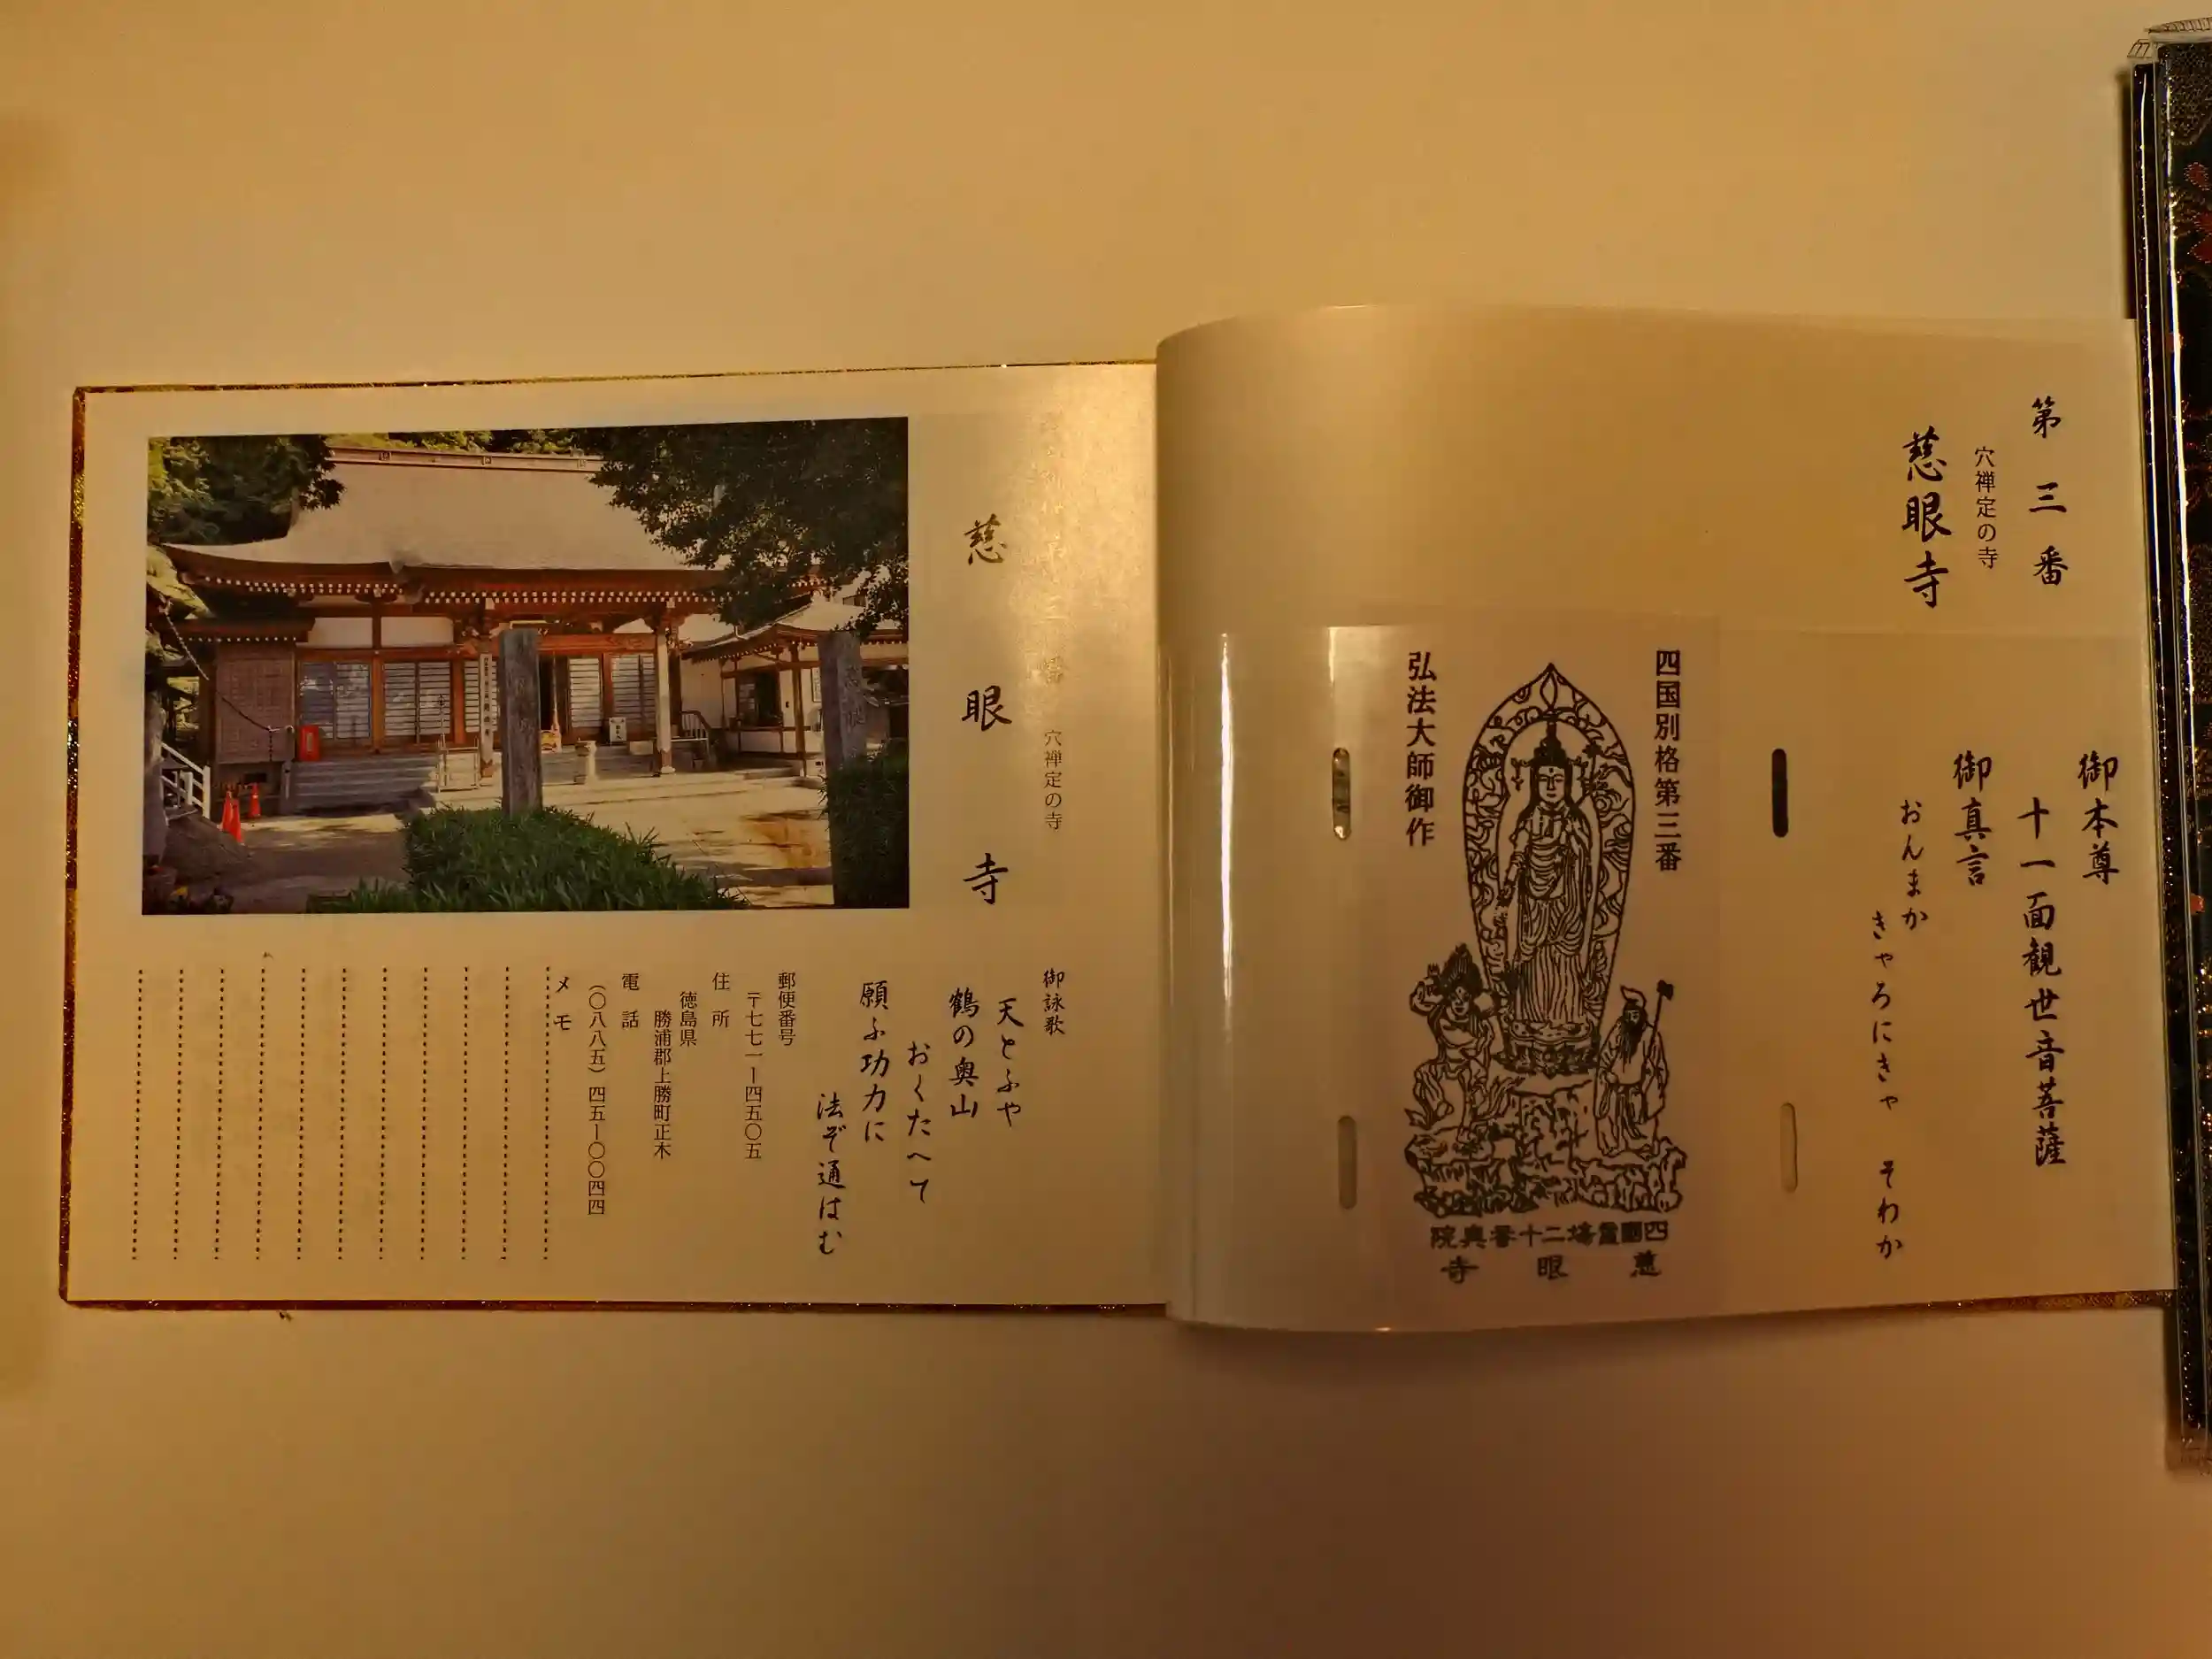 第三番
穴禅定の寺
慈眼寺
御本尊
十一面観世音菩薩
御真言
おんまか
きゃろにきゃ そわか
四国別格第三番
弘法大師御作
四国霊場二十番奥院
慈眼寺
穴禅定の寺
慈眼寺
御詠歌
天とふや
鶴の奥山
おくたへて
願ふ功力に
法ぞ通はむ
郵便番号
〒七七一ー四五〇五
住所
徳島県
勝浦郡上勝町正木
電話
(〇八八五)四五ー〇〇四四
メモ